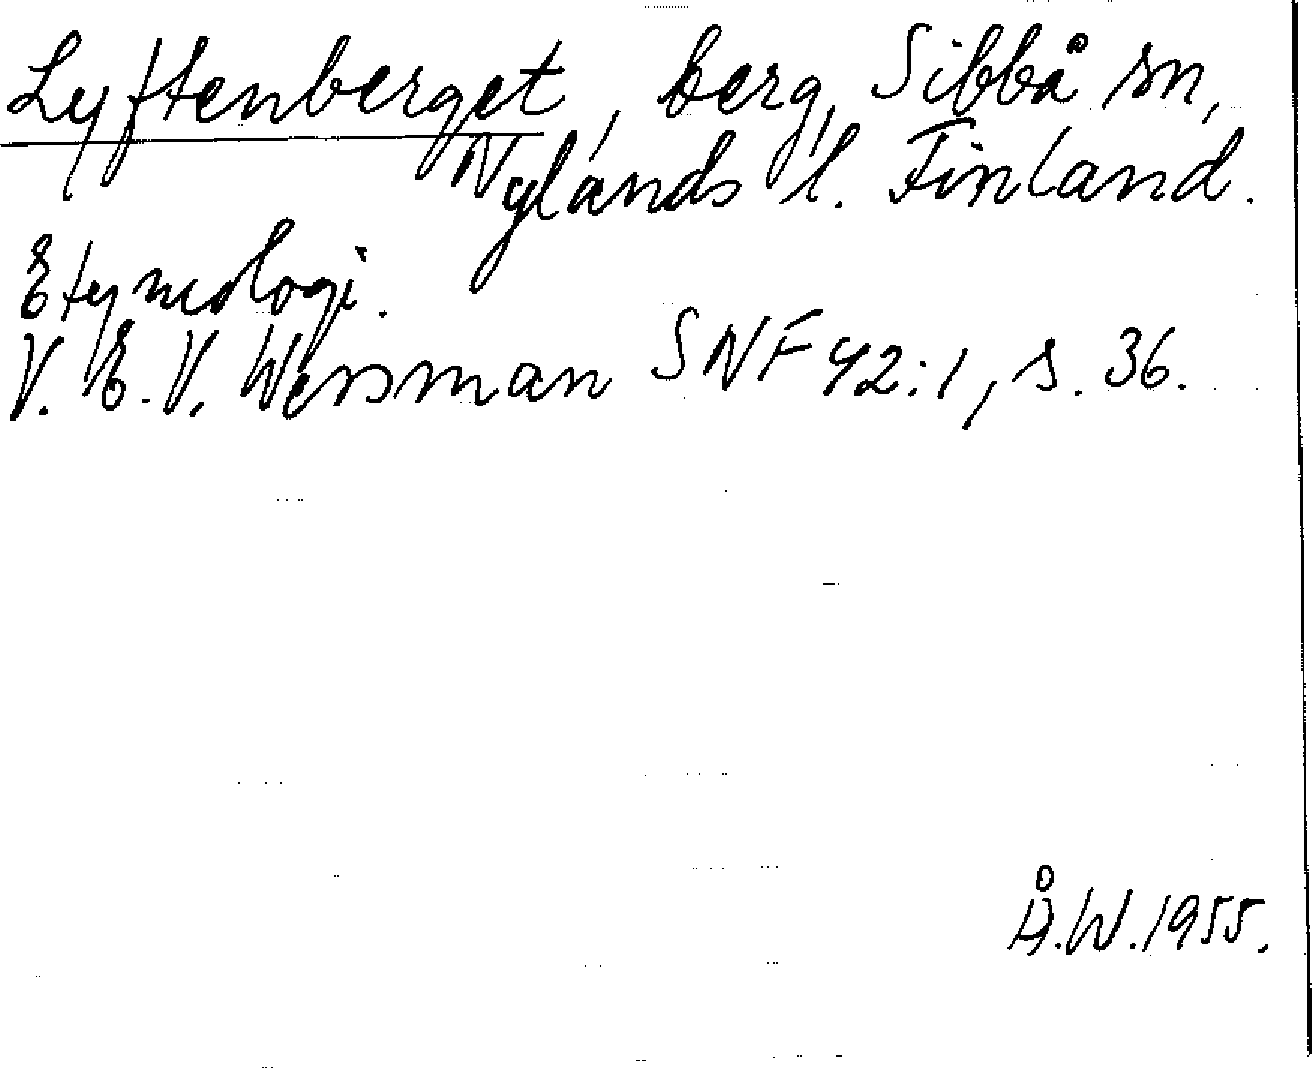 Lyftenberget, berg, Sibbå sn,
Nylands l. Finland.
Etymologi.
V. E. V. Wessman SNF 42:1, s. 36.
Å.W. 1955.